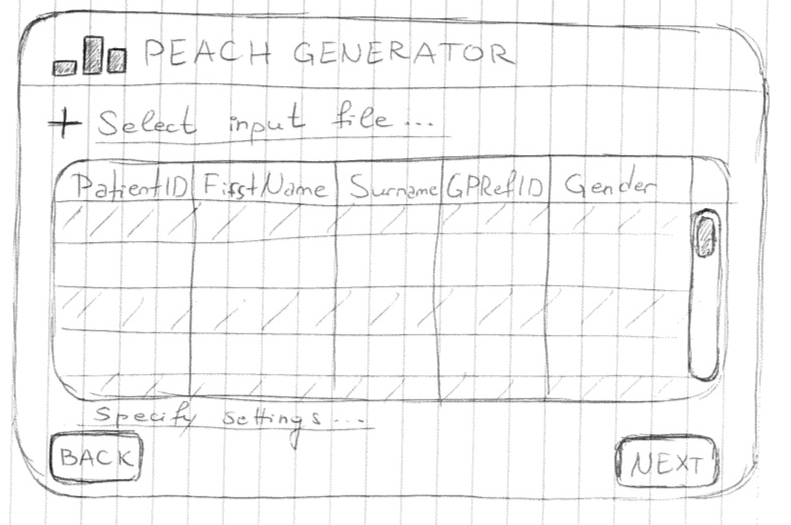 PEACH GENERATOR
+ Select input file...
PatientID FirstName Surname GPRefID Gender
Specify settings...
BACK NEXT